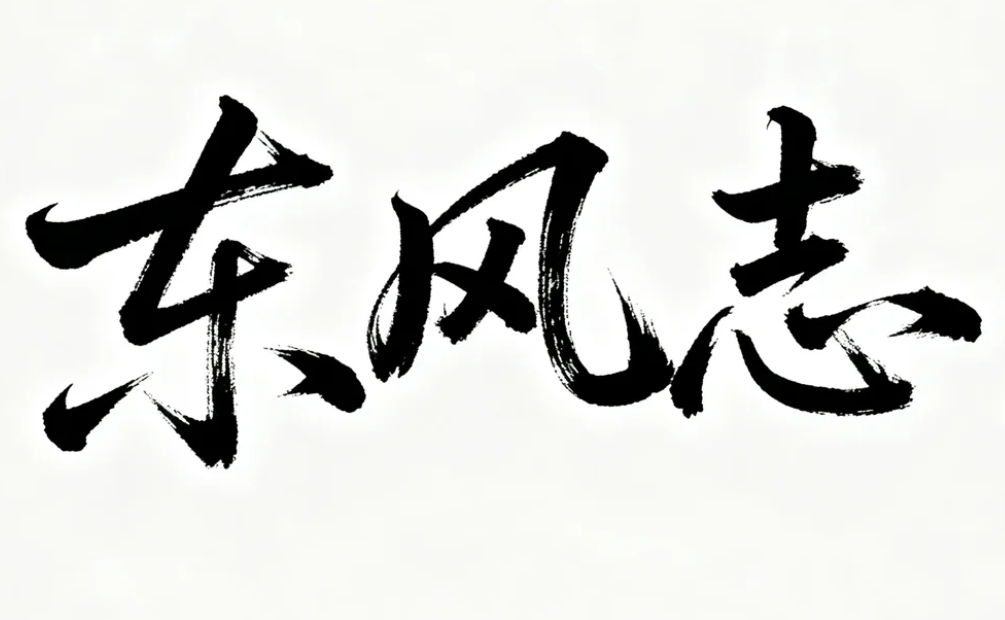 东风志